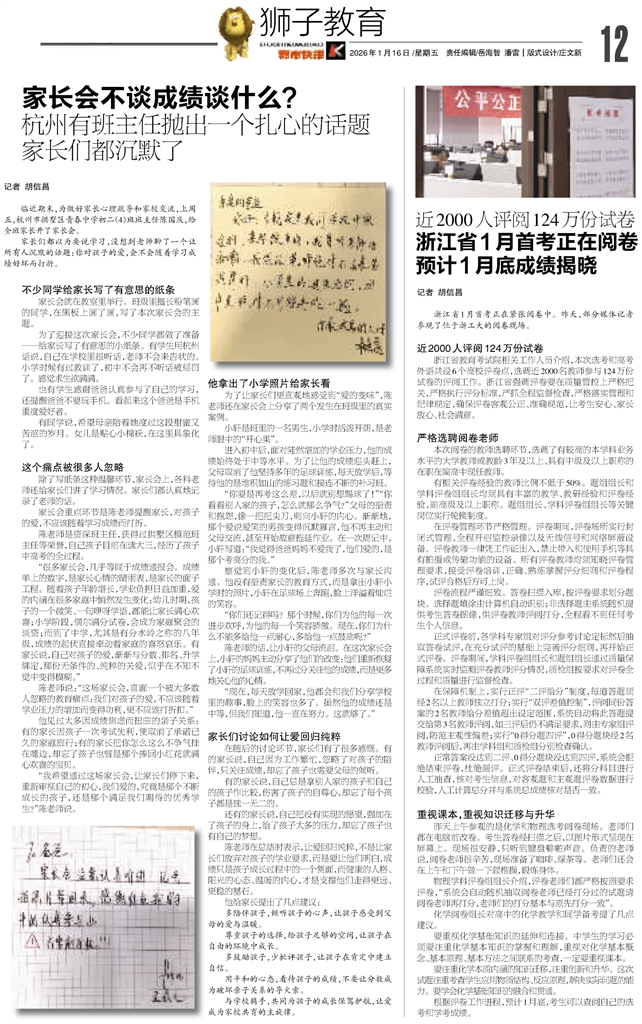 狮子教育
都市快报
2026年1月16日/星期五 责任编辑/岳海智 潘雷 | 版式设计/庄文新
12
家长会不谈成绩谈什么？
杭州有班主任抛出一个扎心的话题
家长们都沉默了
记者 胡信昌
临近期末，为做好家长心理疏导和家校交流，上周
五，杭州市拱墅区青春中学初二(4)班班主任陈国庆，给
全班家长开了家长会。
家长们都以为要说学习，没想到老师聊了一个让
所有人沉默的话题：你对孩子的爱，会不会随着学习成
绩好坏而打折。
不少同学给家长写了有意思的纸条
家长会就在教室里举行。班级里擅长粉笔画
的同学，在黑板上画了画，写了本次家长会的主
题。
为了迎接这次家长会，不少同学都做了准备
——给家长写了有意思的小纸条。有学生用杭州
话说，自己在学校里很听话，老师不会来告状的。
小学时候有过教训了，初中不会再不听话被惩罚
了。感觉求生欲满满。
也有学生感谢爸爸认真参与了自己的学习，
还提醒爸爸不要玩手机。看起来这个爸爸是手机
重度爱好者。
有同学说，希望母亲陪着她度过这段甜蜜又
苦涩的岁月。女儿是贴心小棉袄，在这里具象化
了。
这个痛点被很多人忽略
除了写纸条这种温馨环节，家长会上，各科老
师还给家长们讲了学习情况。家长们都认真地记
录了老师的话。
家长会重点环节是陈老师提醒家长，对孩子
的爱，不应该随着学习成绩而打折。
陈老师是资深班主任，获得过拱墅区模范班
主任等荣誉，自己孩子目前在读大三，经历了孩子
中高考的全过程。
“很多家长会，几乎等同于成绩通报会。成绩
单上的数字，是家长心情的晴雨表，是家长的面子
工程。随着孩子年龄增长，学业负担日益加重，爱
的内涵在很多家庭中悄然发生变化：幼儿时期，孩
子的一个微笑、一句咿呀学语，都能让家长满心欢
喜；小学阶段，偶尔满分试卷，会成为家庭聚会的
谈资；而到了中学，尤其是有分水岭之称的八年
级，成绩的起伏直接牵动着家庭的喜怒哀乐。有
家长说，自己对孩子的爱，渐渐与分数、排名、升学
绑定，那份无条件的、纯粹的关爱，似乎在不知不
觉中变得模糊。”
陈老师说：“这场家长会，直面一个被大多数
人忽略的教育痛点：我们对孩子的爱，不应该随着
学业压力的增加而变得功利，更不应该打折扣。”
他见过太多因成绩焦虑而扭曲的亲子关系：
有的家长因孩子一次考试失利，便取消了承诺已
久的家庭旅行；有的家长把你怎么这么不争气挂
在嘴边，却忘了孩子也曾是那个捧回小红花就满
心欢喜的宝贝。
“我希望通过这场家长会，让家长们停下来，
重新审视自己的初心，我们爱的，究竟是那个不断
成长的孩子，还是那个满足我们期待的优秀学
生？”陈老师说。
他拿出了小学照片给家长看
为了让家长们更直观地感受到“爱的变味”，陈
老师还在家长会上分享了两个发生在班级里的真实
案例。
小轩是班里的一名男生，小学时活泼开朗，是老
师眼中的“开心果”。
进入初中后，面对陡然增加的学业压力，他的成
绩始终处于中等水平。为了让他的成绩迎头赶上，
父母取消了他坚持多年的足球训练，每天放学后，等
待他的是堆积如山的练习题和接连不断的补习班。
“你要是再考这么差，以后就别想踢球了！”“你
看看别人家的孩子，怎么就那么争气！”父母的指责
和抱怨，像一把把尖刀，刺向小轩的内心。渐渐地，
那个爱说爱笑的男孩变得沉默寡言，他不再主动和
父母交流，甚至开始故意拖延作业。在一次周记中，
小轩写道：“我觉得爸爸妈妈不爱我了，他们爱的，是
那个考高分的我。”
察觉到小轩的变化后，陈老师多次与家长沟
通。他没有指责家长的教育方式，而是拿出小轩小
学时的照片，小轩在足球场上奔跑，脸上洋溢着灿烂
的笑容。
“你们还记得吗？那个时候，你们为他的每一次
进步欢呼，为他的每一个笑容骄傲。现在，你们为什
么不能多给他一点耐心，多给他一点鼓励呢？”
陈老师的话，让小轩的父母流泪。在这次家长会
上，小轩的妈妈主动分享了他们的改变：他们重新恢复
了小轩的足球训练，不再过分关注他的成绩，而是更多
地关心他的心情。
“现在，每天放学回家，他都会和我们分享学校
里的趣事，脸上的笑容也多了。虽然他的成绩还是
中等，但我们知道，他一直在努力。这就够了。”
家长们讨论如何让爱回归纯粹
在随后的讨论环节，家长们有了很多感慨。有
的家长说，自己因为工作繁忙，忽略了对孩子的陪
伴，只关注成绩，却忘了孩子也需要父母的倾听。
有的家长说，自己总是拿别人家的孩子和自己
的孩子作比较，伤害了孩子的自尊心，却忘了每个孩
子都是独一无二的。
还有的家长说，自己把没有实现的愿望，强加在
了孩子的身上，给了孩子太多的压力，却忘了孩子也
有自己的梦想。
陈老师在总结时表示，让爱回归纯粹，不是让家
长们放弃对孩子的学业要求，而是要让他们明白，成
绩只是孩子成长过程中的一个侧面，而健康的人格、
阳光的心态、温暖的内心，才是支撑他们走得更远、
更稳的基石。
他给家长提出了几点建议：
多陪伴孩子，倾听孩子的心声，让孩子感受到父
母的爱与温暖。
尊重孩子的选择，给孩子足够的空间，让孩子在
自由的环境中成长。
多鼓励孩子，少批评孩子，让孩子在肯定中建立
自信。
用平和的心态，看待孩子的成绩，不要让分数成
为破坏亲子关系的导火索。
与学校携手，共同为孩子的成长保驾护航，让爱
成为家校共育的主旋律。
公平公正
近2000人评阅124万份试卷
浙江省1月首考正在阅卷
预计1月底成绩揭晓
记者 胡信昌
浙江省1月首考正在紧张阅卷中。昨天，部分媒体记者
参观了位于浙工大的阅卷现场。
近2000人评阅124万份试卷
浙江省教育考试院相关工作人员介绍，本次选考和高考
外语共设6个高校评卷点，选调近2000名教师参与124万份
试卷的评阅工作。浙江省强调评卷要在质量管控上严格把
关，严格执行评分标准，严抓全程监督检查，严格落实管理和
纪律规定，确保评卷客观公正、准确规范，让考生安心、家长
放心、社会满意。
严格选聘阅卷老师
本次阅卷的教师选聘环节，选调了有较高的本学科业务
水平的大学教师或教龄3年及以上、具有中级及以上职称的
在职在编高中现任教师。
有相关评卷经验的教师比例不低于50%。题组组长和
学科评卷组组长均须具有丰富的教学、教研经验和评卷经
验，副高级及以上职称。题组组长、学科评卷组组长等关键
岗位实行轮换制度。
在评卷管理环节严格管理。评卷期间，评卷场所实行封
闭式管理，全程开启监控录像以及无线信号和网络屏蔽设
备。评卷教师一律凭工作证出入，禁止带入和使用手机等具
有拍摄或传输功能的设备。所有评卷教师均须知晓评卷管
理要求，接受评卷培训，正确、熟练掌握评分细则和评卷程
序，试评合格后方可上岗。
评卷流程严谨细致。答卷扫描入库，按评卷要求划分题
块。选择题填涂由计算机自动识别；非选择题由系统随机提
供考生答卷图像，供评卷教师评阅打分，全程看不到任何考
生个人信息。
正式评卷前，各学科专家组对评分参考讨论定标然后抽
取答卷试评，在充分试评的基础上完善评分细则，再开始正
式评卷。评卷期间，学科评卷组组长和题组组长通过质量保
障系统实时监测评卷教师评分情况，质检组按要求对评卷全
过程和质量进行监督检查。
在保障机制上，实行正评“二评给分”制度，每道答题须
经2名以上教师独立打分；实行“双评差值控制”，评阅同份答
案的2名教师给分差值超出设定范围，系统自动将此答题提
交给第3名教师评阅，如三评后仍不满足要求，则由专家组评
阅，防范主观性偏差；实行“0得分题四评”，0得分题块经2名
教师评阅后，再由学科组和质检组分别检查确认。
正常答案没达到二评、0得分题块没达到四评，系统会拒
绝结束评卷，杜绝漏评。正式评卷结束后，还将分科目进行
人工抽查，核对考生信息，对客观题和主观题评卷数据进行
校验，人工计算总分并与系统总成绩核对是否一致。
重视课本，重视知识迁移与升华
昨天上午参观的是化学和物理选考阅卷现场。老师们
都在电脑前改卷。考生答卷经扫描之后，以图片形式呈现在
屏幕上。现场很安静，只听到键盘噼啪声音。负责的老师
说，阅卷老师很辛苦，现场准备了咖啡、绿茶等。老师们还会
在上午和下午做一下颈椎操，锻炼身体。
物理学科评卷组组长介绍，评卷老师们都严格按照要求
评卷，“系统会自动随机抽取阅卷老师已经打分过的试题请
阅卷老师再打分，老师们的打分基本与原先打分一致”。
化学阅卷组长对高中的化学教学和同学备考提了几点
建议。
要重视化学基础知识的延伸和连接。中学生的学习必
须要注重化学基本知识的掌握和理解，重视对化学基本概
念、基本原理、基本方法之间联系的考查，一定要重视课本。
要注重化学本质内涵的知识迁移，注重创新和升华。这次
试题注重考查学生应用物质结构、反应原理，解决实际问题的能
力。要学会化学基础知识的融合和贯通。
根据评卷工作进程，预计1月底，考生可以查阅自己的选
考和学考成绩。